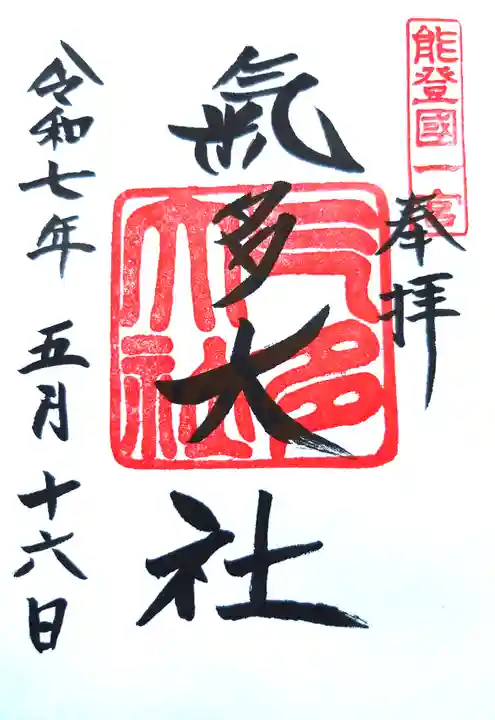 能登國一宮
奉拝
氣多大社
气多大社
令和七年 五月 十六日